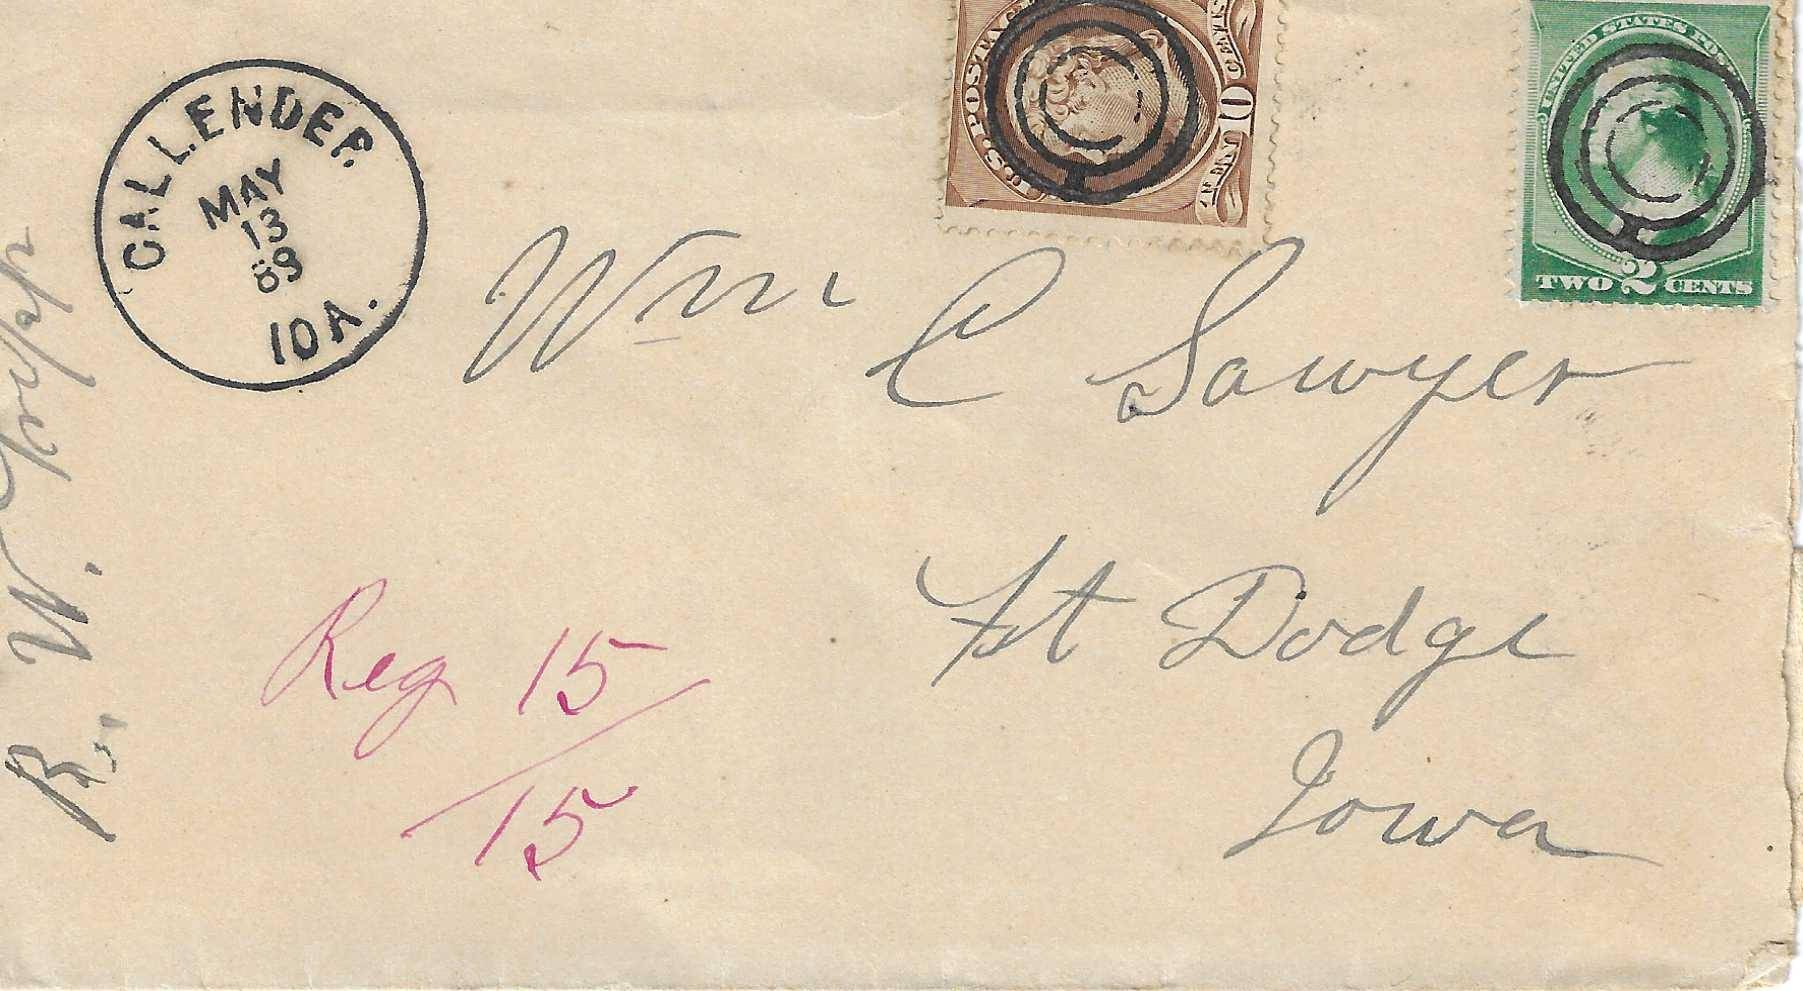 CALLENDER
MAY
13
89
IOA.
U.S. POSTAGE
10
UNITED STATES POST
TWO 2 CENTS
Wm C Sawyer
Ft Dodge
Iowa
Reg 15
15
W.